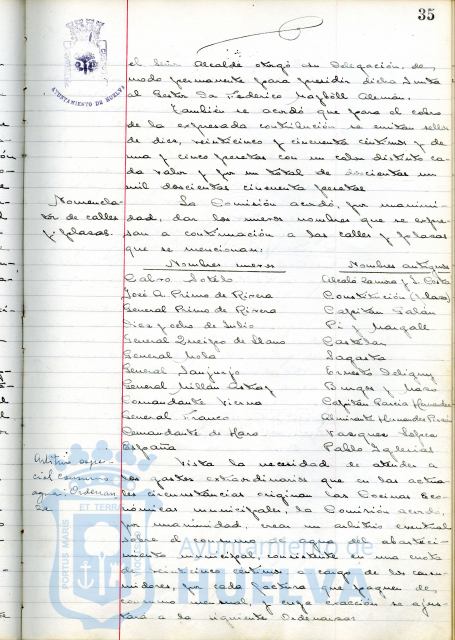 35
AYUNTAMIENTO DE HUELVA
el Señor Alcalde otorgó su Delegación, de
modo permanente para presidir dicha Junta
al Gestor Don Federico Mayboll Alemán.
También se acordó que para el cobro
de la expresada contribución se emitan sellos
de diez, veinticinco y cincuenta céntimos y de
una y cinco pesetas con un color distinto ca-
da valor y por un total de doscientas un
mil doscientas cincuenta pesetas
Nomencla-
tor de calles
y plazas.
La Comisión acordó, por unanimi-
dad, dar los nuevos nombres que se expre-
san a continuación a las calles y plazas
que se mencionan:
Nombres nuevos Nombres antiguos
Calvo Sotelo Alcalá Zamora y L. Cota
José A. Primo de Rivera Constitución (Plaza)
General Primo de Rivera Capitán Galán
Diez y ocho de Julio Pi y Margall
General Queipo de Llano Castelar
General Mola Sagasta
General Sanjurjo Ernesto Deligny
General Millán Astray Burgos y Mazo
Comandante Vierna Capitán García Hernández
General Franco Almirante Hernández Pinzón
Comandante de Haro Vázquez López
España Pablo Iglesias
Arbitrio espe-
cial consumo
agua. Ordenan-
za
Vista la necesidad de atender a
los gastos extraordinarios que en las actua-
les circunstancias originan las Cocinas Eco-
nómicas municipales, la Comisión acordó,
por unanimidad, crear un arbitrio eventual
sobre el consumo de agua del abasteci-
miento municipal, consistente en una cuota
de veinticinco céntimos a cargo de los consu-
midores, por cada factura que paguen de
consumo mensual, y cuya exacción se ajus-
tará a la siguiente Ordenanza:
PORTUS MARIS ET TERRAE
Ayuntamiento de
HUELVA